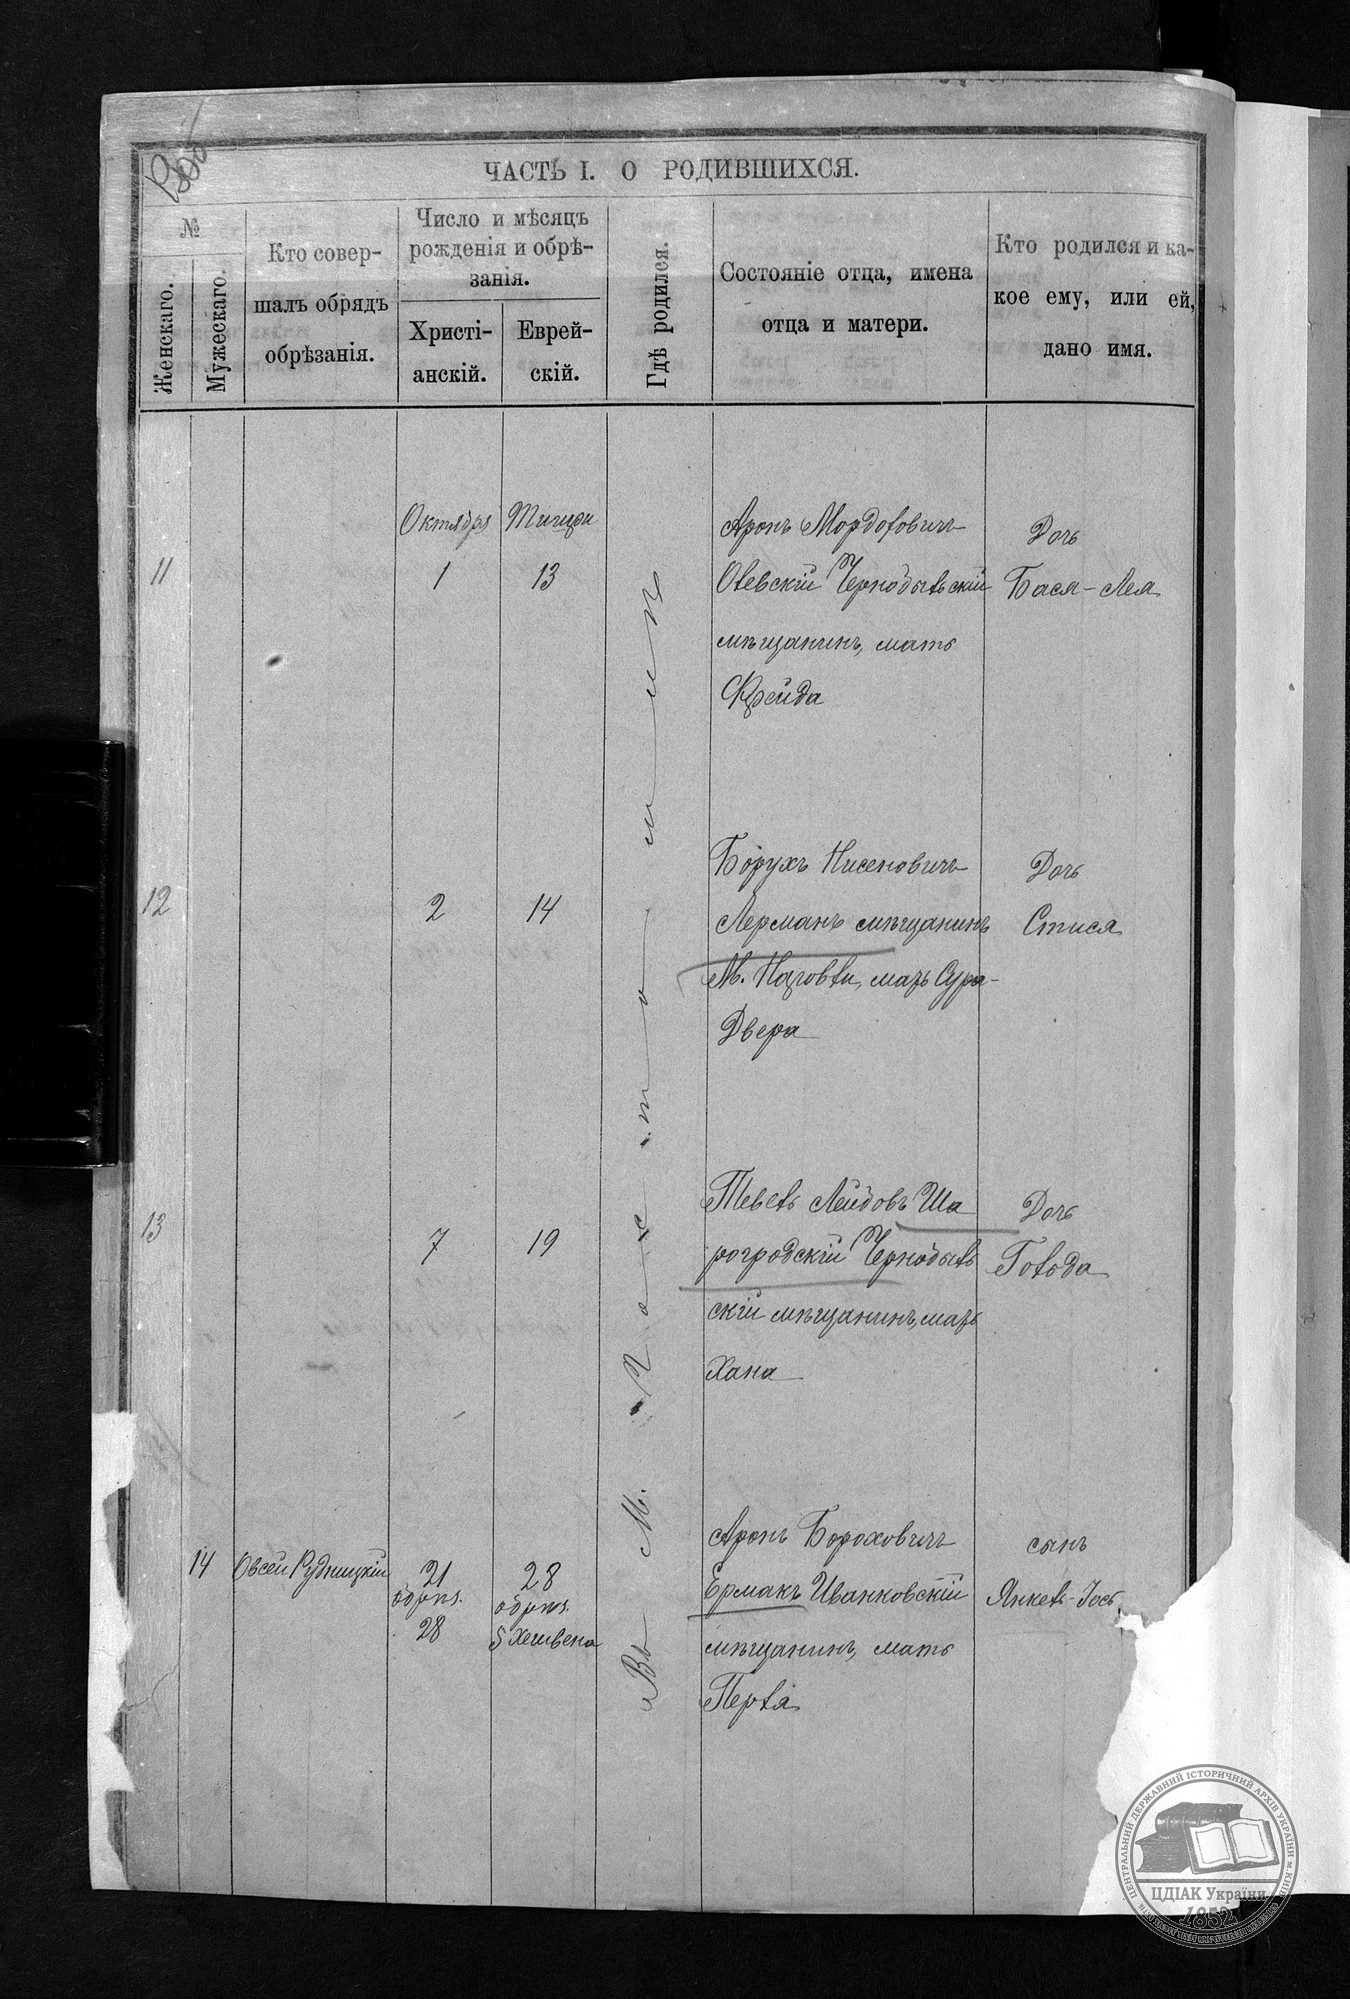 ЧАСТЬ I. О РОДИВШИХСЯ.
№
Женскаго.
Мужескаго.
Кто совер-
шалъ обрядъ
обрѣзанія.
Число и мѣсяцъ
рожденія и обрѣ-
занія.
Христі-
анскій.
Еврей-
скій.
Гдѣ родился.
Состояніе отца, имена
отца и матери.
Кто родился и ка-
кое ему, или ей,
дано имя.
Октября
Тишри
11
1
13
Аронъ Мордковичъ
Олевскій Чернобыльскій
мѣщанинъ, мать
Фрейда
Дочь
Бася-Лея
12
2
14
Борухъ Нисеновичъ
Лерманъ мѣщанинъ
М. мать Сура-
Двера
Дочь
Стися
13
7
19
Тевель Лейбовъ Ша
рогродскій Чернобыль
скій мѣщанинъ, мать
Хана
Дочь
Гольда
14
Овсей Рудницкій
21
обрѣз.
28
28
обрѣз.
5 Хешвена
Аронъ Бороховичъ
Ермакъ Иванковскій
мѣщанинъ, мать
Перля
сынъ
Янкель-Іось
Въ М.
ЦЕНТРАЛЬНИЙ ДЕРЖАВНИЙ ІСТОРИЧНИЙ АРХІВ УКРАЇНИ М. КИЇВ
ЦДІАК України
1852